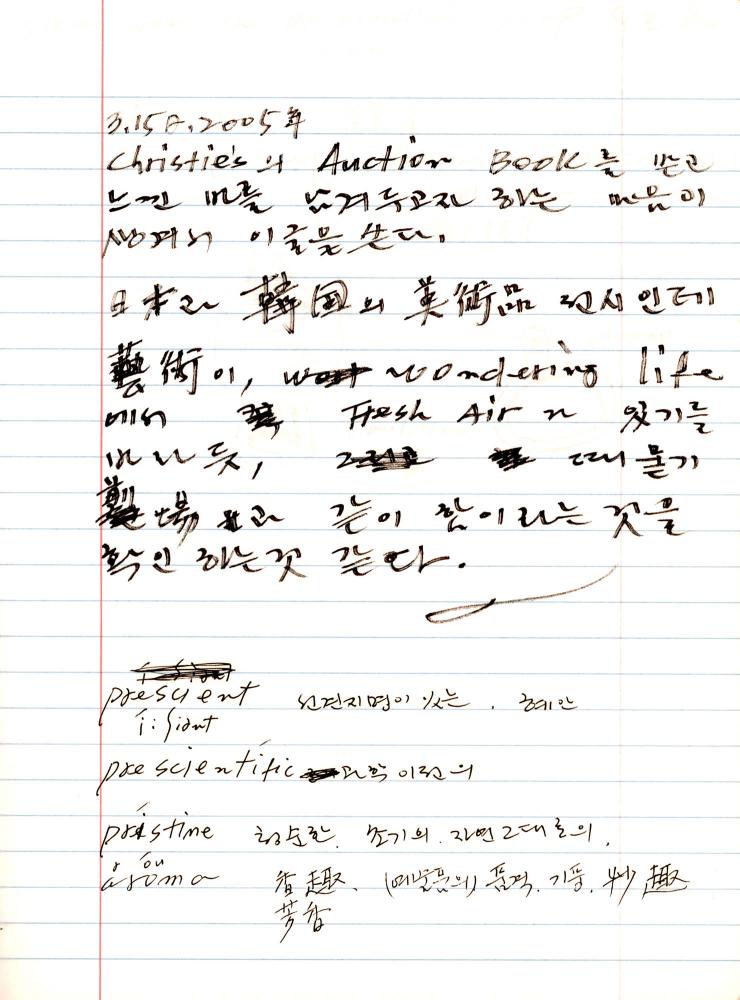 3.15日.2005年
Christie's의 Auction Book를 받고
느낀 바를 남겨두고자 하는 마음이
생겨서 이글을 쓴다.
日本과 韓国의 美術品 전시인데
藝術이, wondering life
에서 Fresh Air가 있기를
바라듯, 때묻기
場과 같이 함이라는 것을
확인 하는것 같다.
prescient 선견지명이 있는. 혜안
i:ʃiənt
prescientific 과학이전의
pristine 청순한. 초기의. 자연그대로의.
ou
aroma 香趣. (예술품의) 품격. 기품. 妙趣
芳香